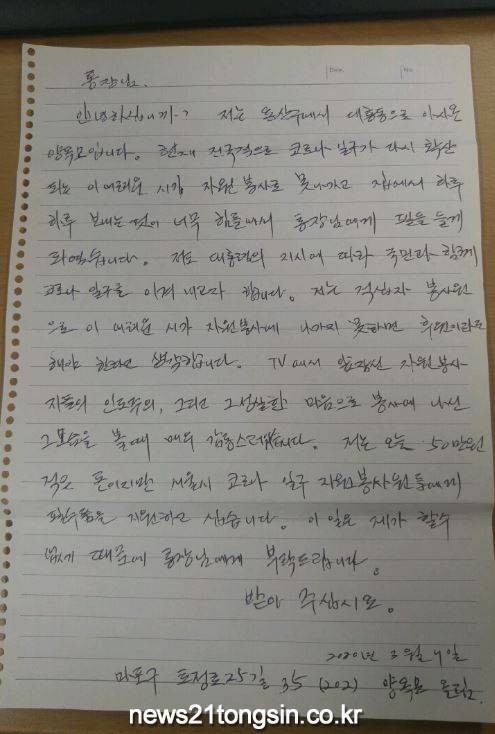 Date. No.
통장님.
안녕하십니까? 저는 용산구에서 대흥동으로 이사온
양옥모입니다. 현재 전국적으로 코로나 19가 다시 확산
되는 이 어려운 시기 자원봉사로 못나가고 집에서 하루
하루 보내는 것이 너무 힘들어서 통장님에게 편을 들게
되였습니다. 저도 대통령의 지시에 따라 국민과 함께
코로나 19를 이겨내고자 합니다. 저는 적십자 봉사원
으로 이 어려운 시기 자원봉사에 나가지 못하면 후원이라도
해야 한다고 생각합니다. TV에서 자원봉사
자들의 인도주의, 그리고 그 성실한 마음으로 봉사에 나선
그 모습을 볼때 매우 감동스러웠습니다. 저는 오늘 50만원
적은 돈이지만 서울시 코로나 19 자원봉사원들에게
지원하고 싶습니다. 이 일은 제가 할수
없기 때문에 통장님에게 부탁드립니다.
받아 주십시오.
2020년 3월 4일
마포구 토정로25길 35 (202) 양옥모 올림.
news21tongsin.co.kr